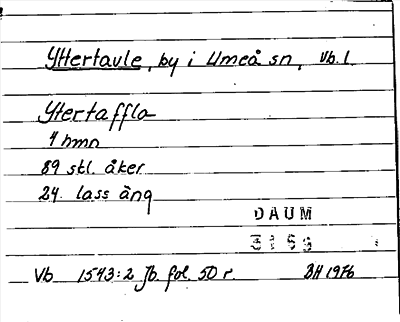 Yttertavle, by i Umeå sn, Vb. l.
Ytertaffla
4 hmn
89 skl. åker
24. lass äng
DAUM
3159
Vb 1543:2 Jb. fol. 50 r. BH 1976